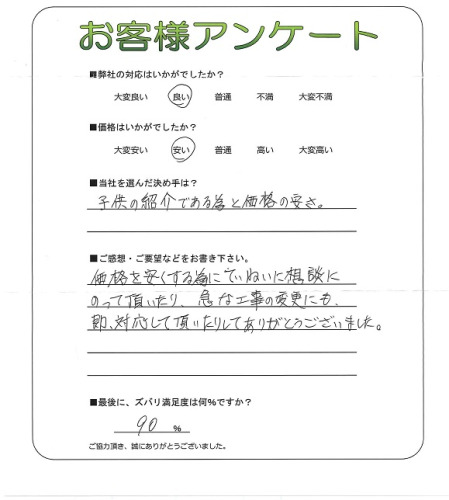 お客様アンケート
■弊社の対応はいかがでしたか？
大変良い 良い 普通 不満 大変不満
■価格はいかがでしたか？
大変安い 安い 普通 高い 大変高い
■当社を選んだ決め手は？
子供の紹介である為と価格の安さ。
■ご感想・ご要望などをお書き下さい。
価格を安くする為にていねいに相談に
のって頂いたり、急な工事の変更にも、
即、対応して頂いたりしてありがとうございました。
■最後に、ズバリ満足度は何%ですか？
90 %
ご協力頂き、誠にありがとうございました。